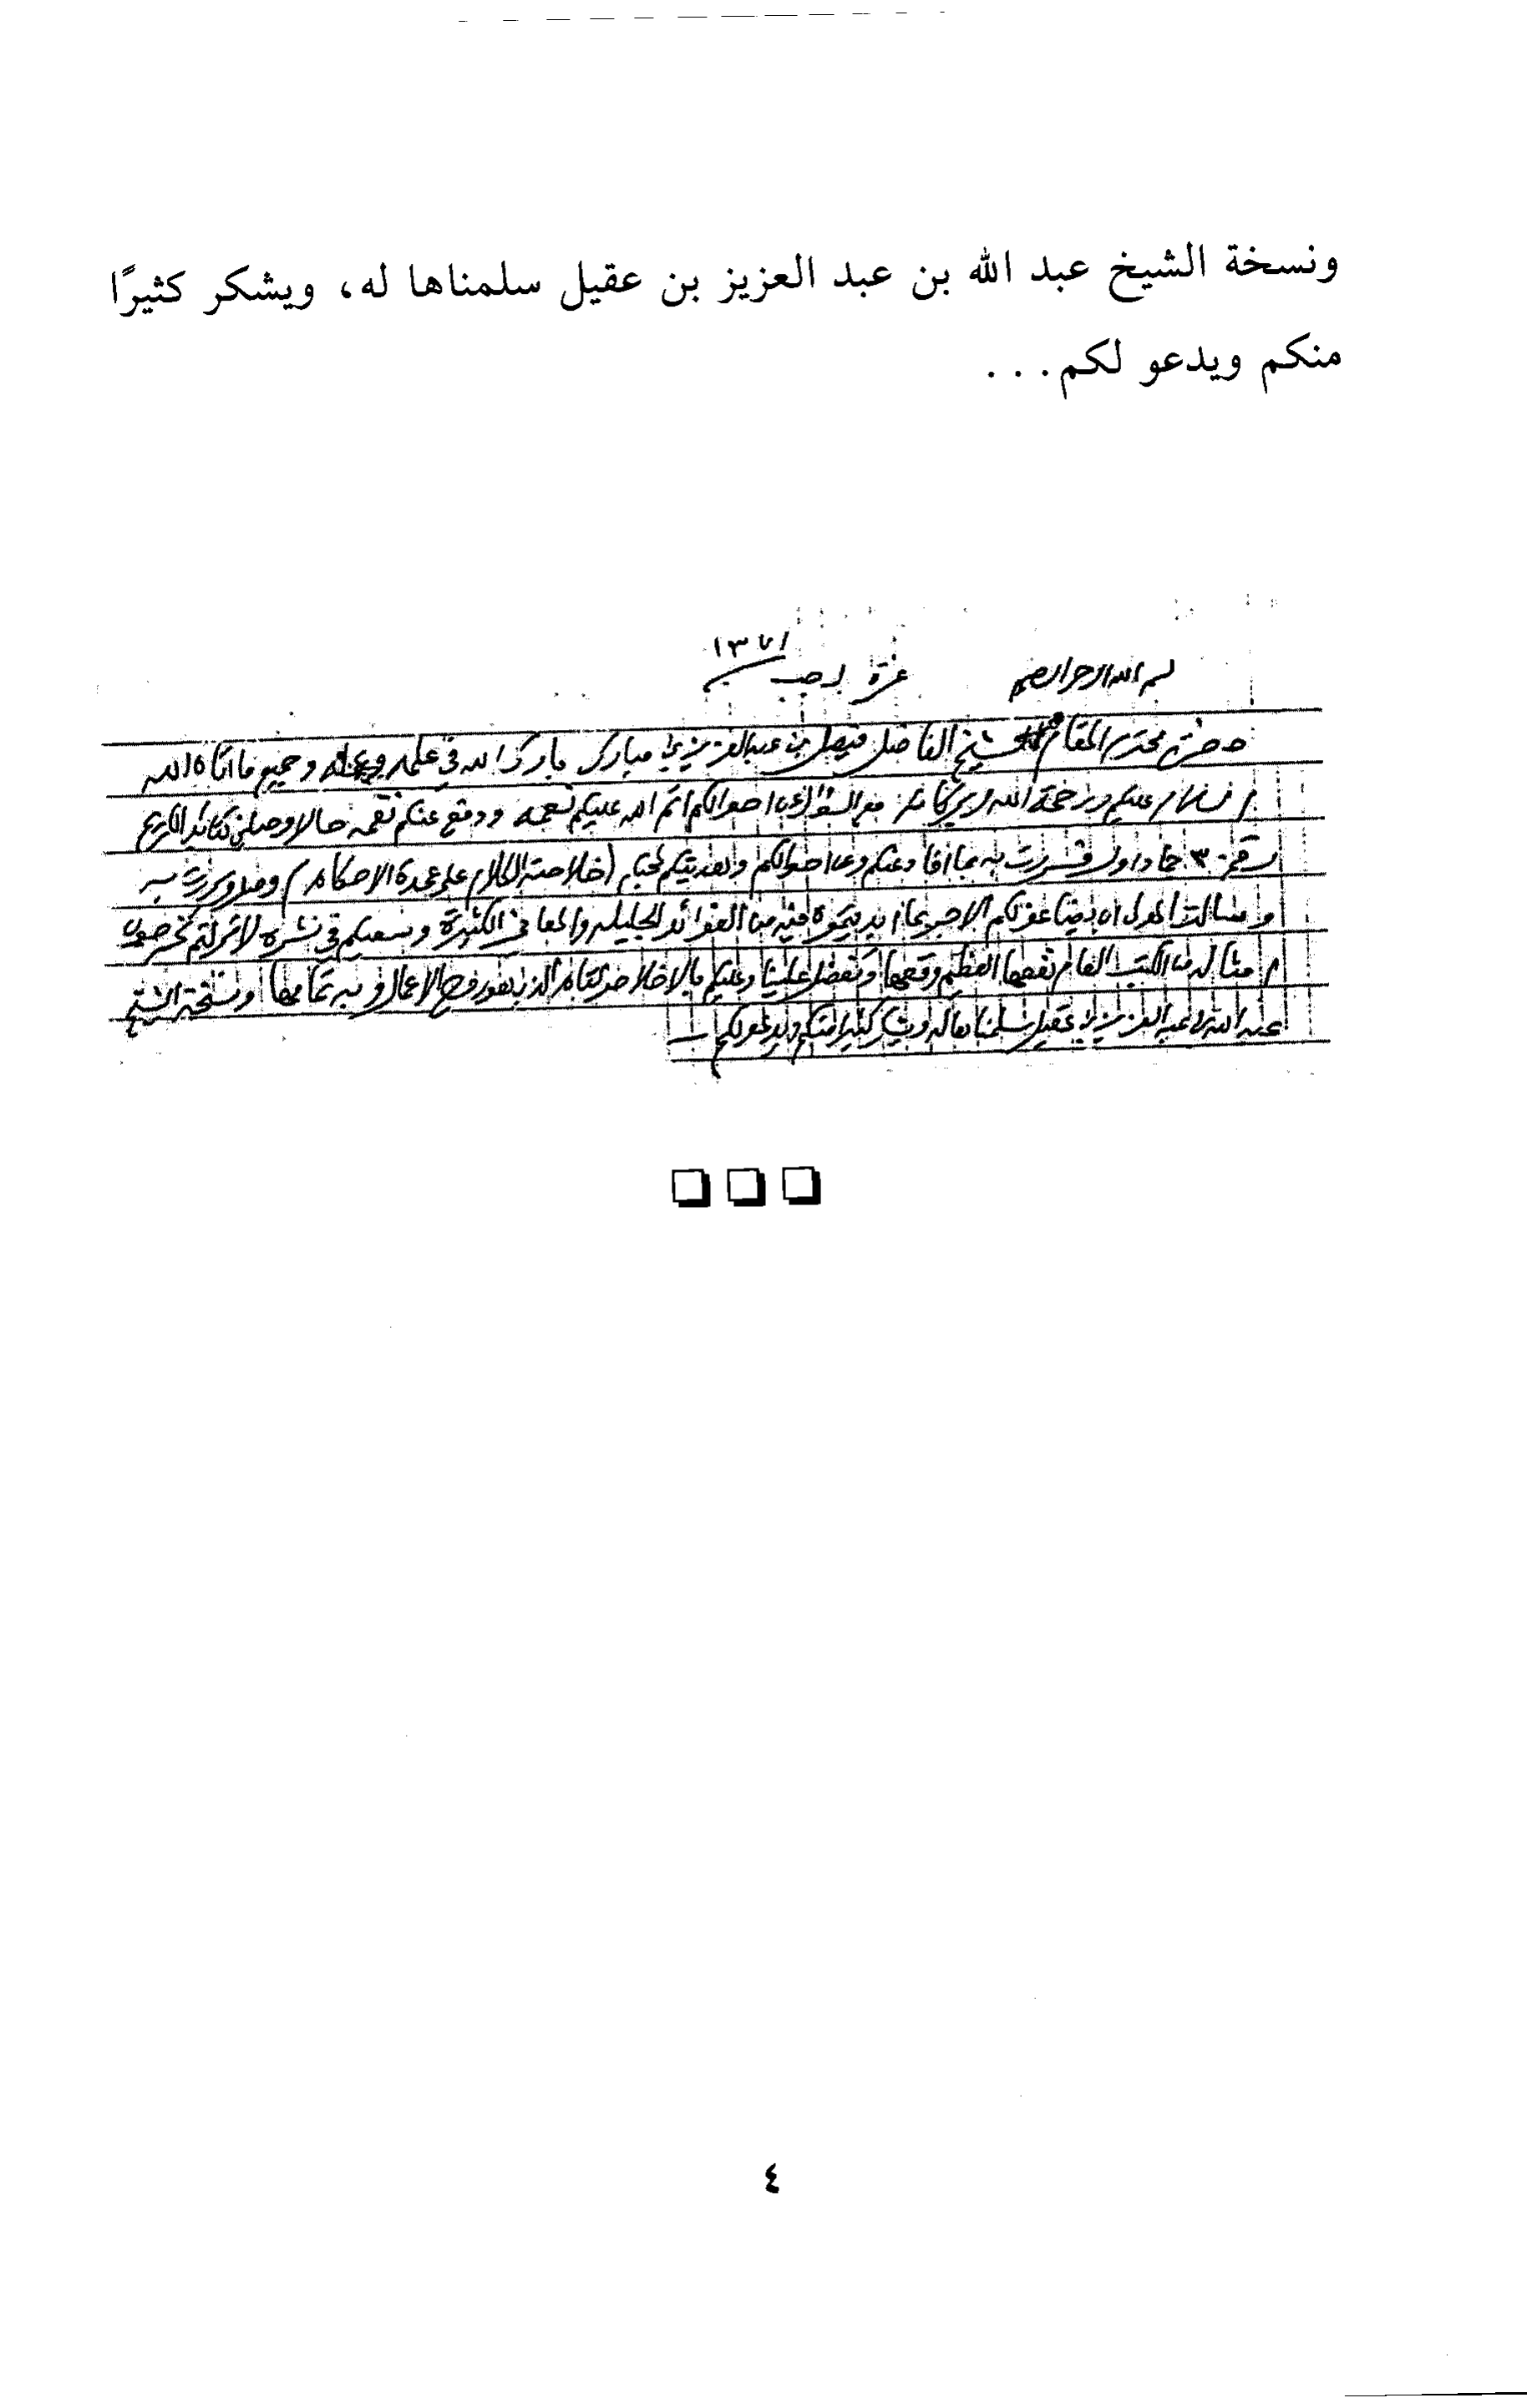 ونسخة الشيخ عبد الله بن عبد العزيز بن عقيل سلمناها له، ويشكر كثيرًا
منكم ويدعو لكم...
١٣٧١
بسم الله الرحمن الرحيم غرة رجب
حضرة محترم المقام الشيخ الفاضل فيصل بن عبد العزيز بن مبارك بارك الله في علمه وعمله وجميع ما اتاه الله
السلام عليكم ورحمة الله وبركاته مع السؤال عن احوالكم اتم الله عليكم نعمه ودفع عنكم نقمه حالا وصلني كتابكم الكريم
رقم ٣٠ جماد اول فسررت به بما افاد عنكم وعن احوالكم وبهديتكم لمحبكم (خلاصة الكلام على عمدة الاحكام) وصل وسررت به
وسالت المولى ان يضاعف لكم الاجر بما ابديتموه فيه من الفوائد الجليله والمعاني الكثيرة وسعيكم في نشره لا زلتم تخرجون
امثاله من الكتب النافع نفعها العظيم وقعها وتفضل علينا وعليكم بالاخلاص الكامل الذي هو روح الاعمال وبه تمامها ونسخة الشيخ
عبد الله بن عبد العزيز بن عقيل سلمناها له ويشكر كثيرا منكم ويدعو لكم
٤